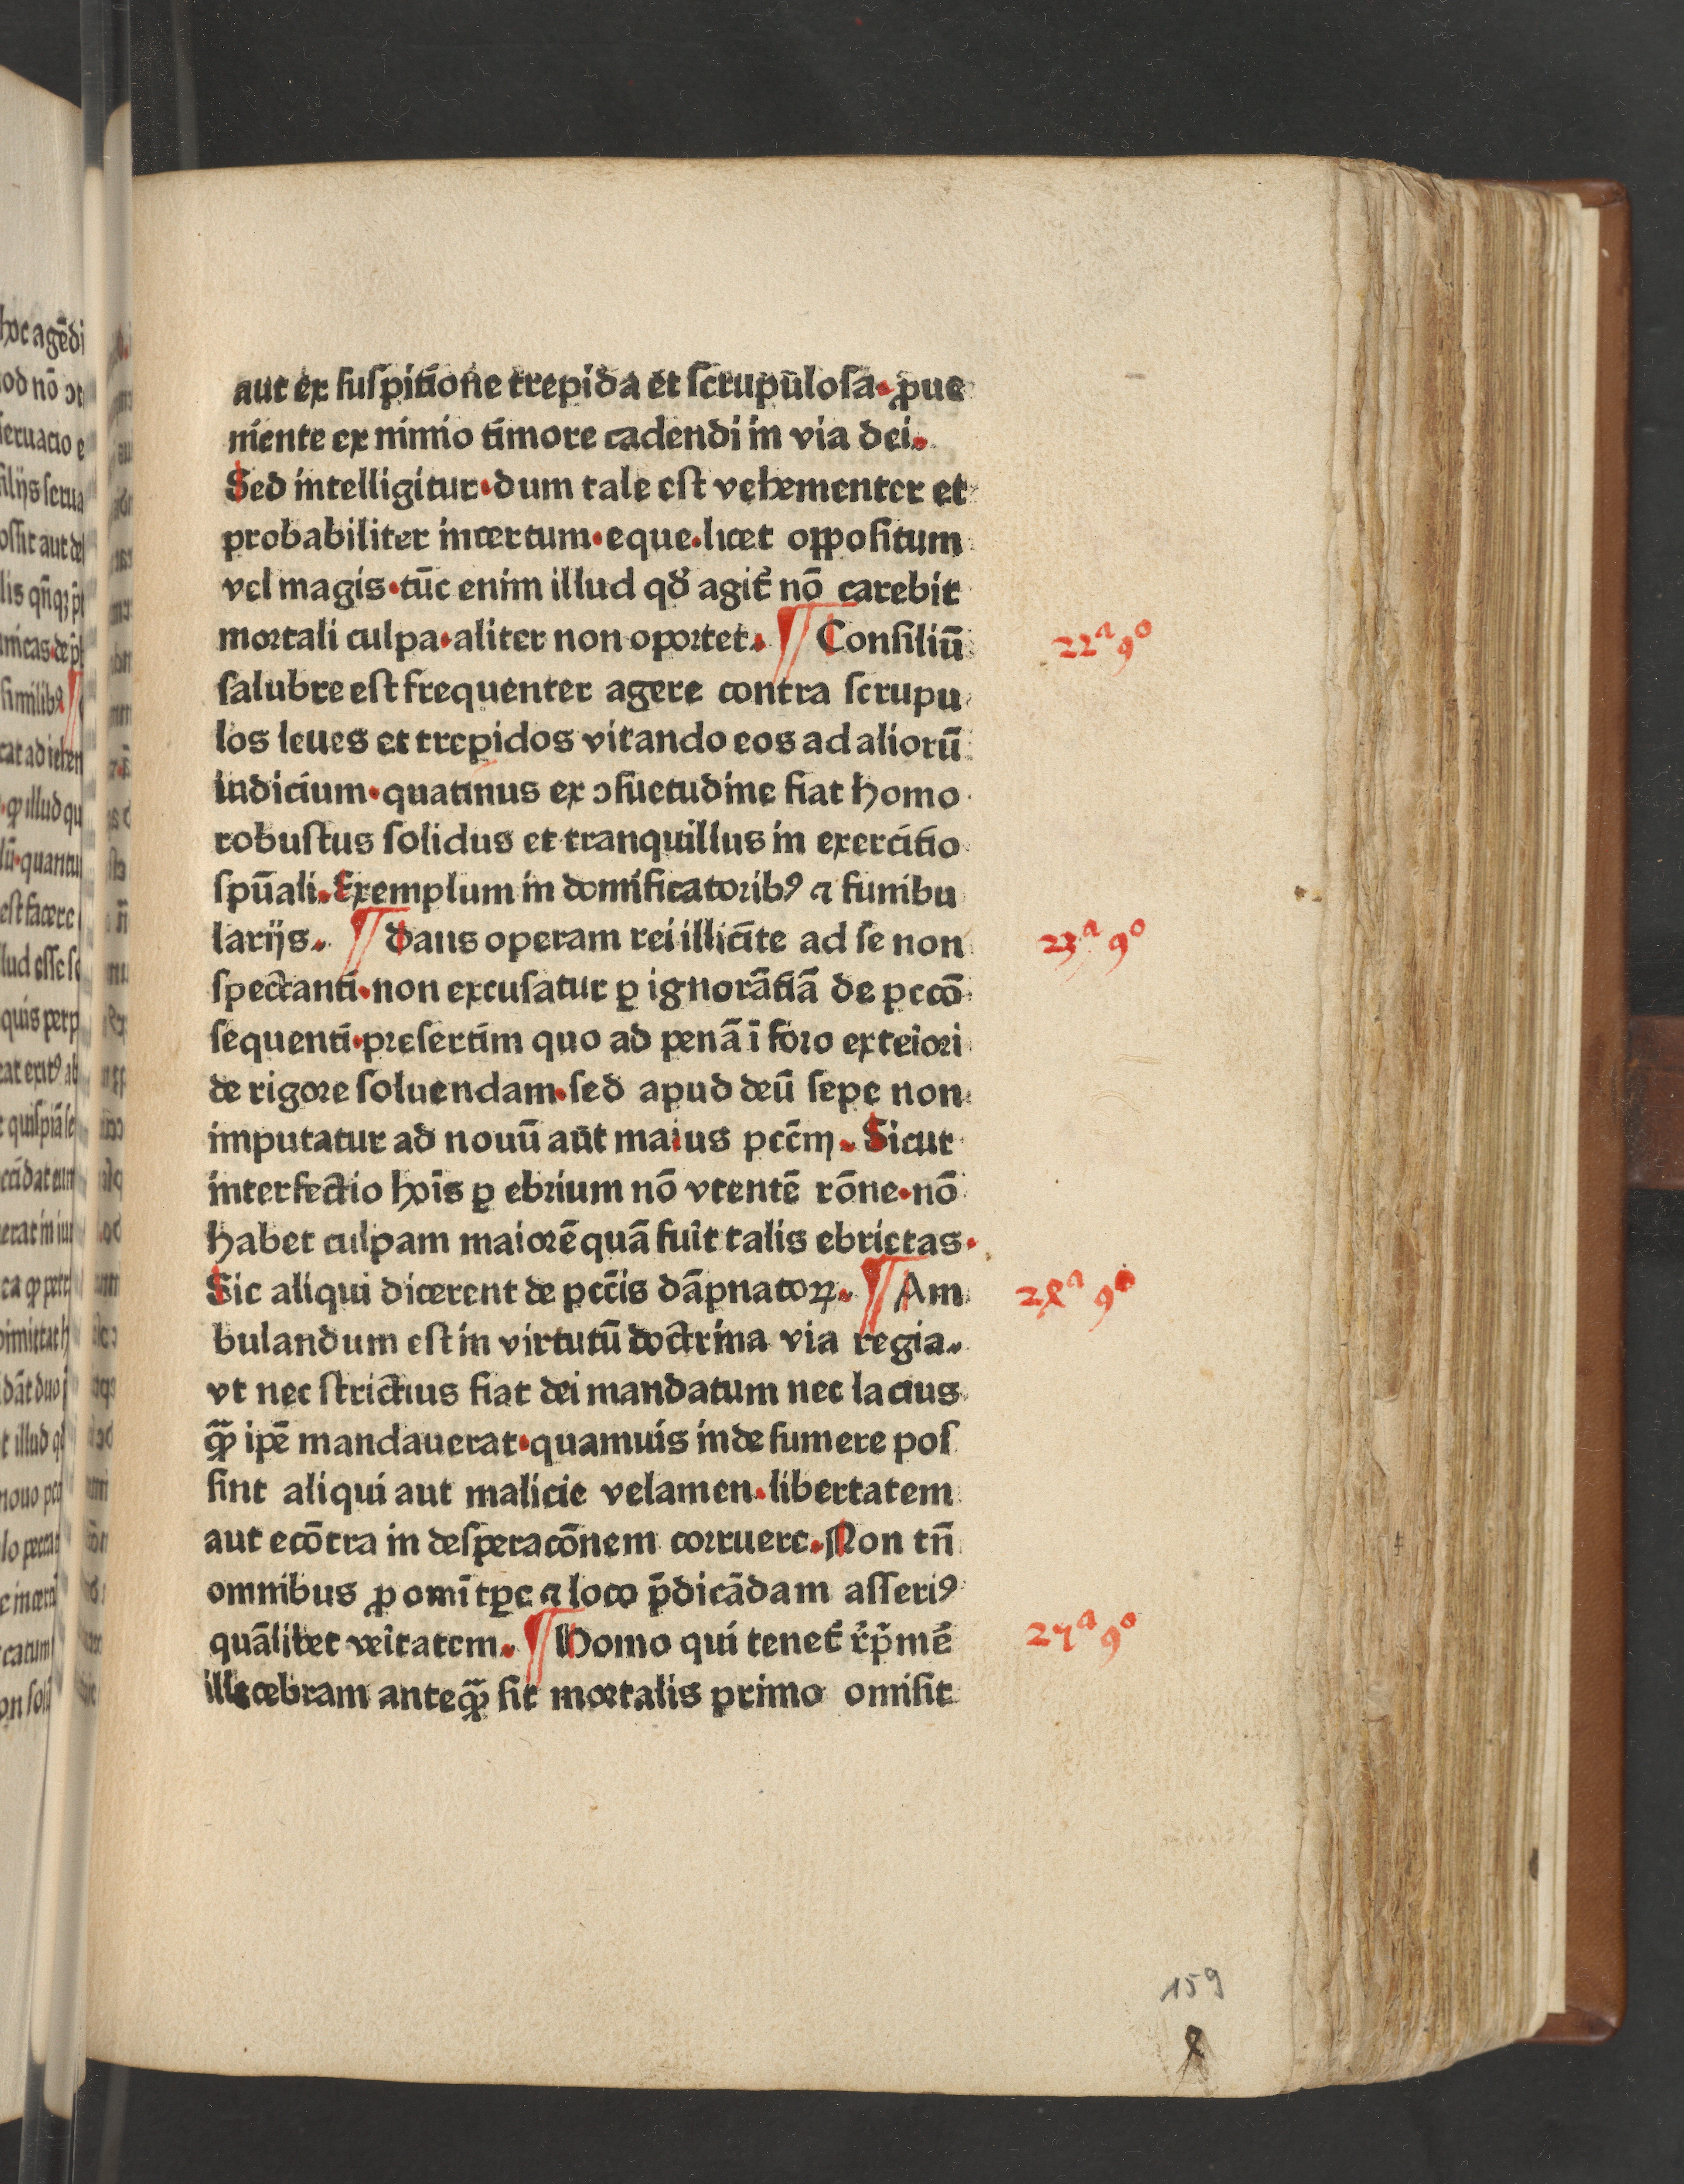 aut ex suspitione trepida et scrupulosa. ꝓue
niente ex nimio timore cadendi in via dei.
Sed intelligitur. dum tale est vehementer et
probabiliter incertum. eque. licet oppositum
vel magis. tūc enim illud qđ agit᷑ nō carebit
mortali culpa. aliter non oportet. ¶ Consiliū
22ª 9º
salubre est frequenter agere contra scrupu
los leues et trepidos vitando eos ad aliorū
iudicium. quatinus ex ɔsuetudine fiat homo
robustus solidus et tranquillus in exercitio
spūali. Exemplum in domificatoribꝰ ⁊ funibu
larijs. ¶ Dans operam rei illicite ad se non
23ª 9º
spectanti. non excusatur ꝑ ignorātiā de pccō
sequenti. presertim quo ad penā ī foro exteīori
de rigore soluendam. sed apud deū sepe non
imputatur ad nouū aūt maius pccm̄. Sicut
interfectio hoīs ꝑ ebrium nō vtentē rōne. nō
habet culpam maiorē quā fuit talis ebrietas.
Sic aliqui dicerent de pcc̄is dāpnatoꝝ. ¶ Am
24ª 9º
bulandum est in virtutū doctrina via regia.
vt nec strictius fiat dei mandatum nec lacius
qͣꝫ ipē mandauerat. quamuis inde sumere pos
sint aliqui aut malicie velamen. libertatem
aut ecōtra in desperacōnem corruere. Non tn̄
omnibus ꝓ omī tꝑe ⁊ loco p̄dicādam asseriꝰ
quālibet veītatem. ¶ Homo qui tenet᷑ r̄p̄mē
25ª 9º
illecebram anteqͣꝫ sit mortalis primo omisit
159